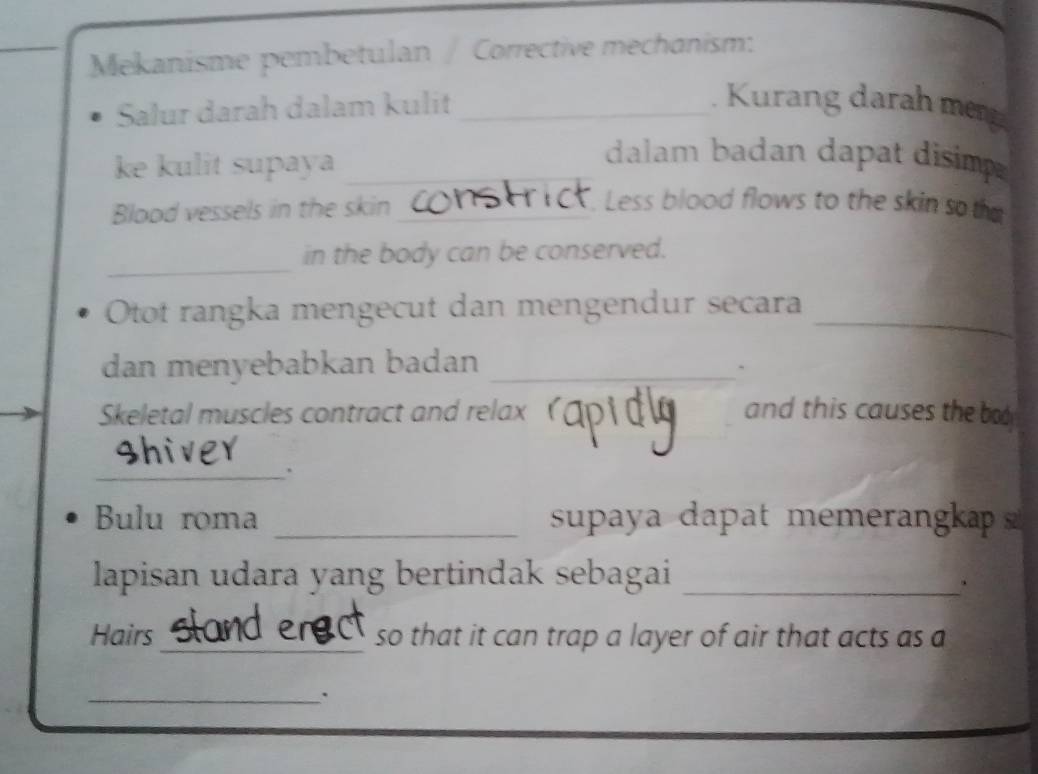 Mekanisme pembetulan / Corrective mechanism:
• Salur darah dalam kulit ____________. Kurang darah
ke kulit supaya ____________ dalam badan dapat
Blood vessels in the skin constrict. Less blood flows to the skin so that
____________ in the body can be conserved.
• Otot rangka mengecut dan mengendur secara ____________
dan menyebabkan badan ____________.
Skeletal muscles contract and relax rapidly and this causes the body
shiver.
• Bulu roma ____________ supaya dapat memerangkap
lapisan udara yang bertindak sebagai ____________.
Hairs stand erect so that it can trap a layer of air that acts as a
____________.